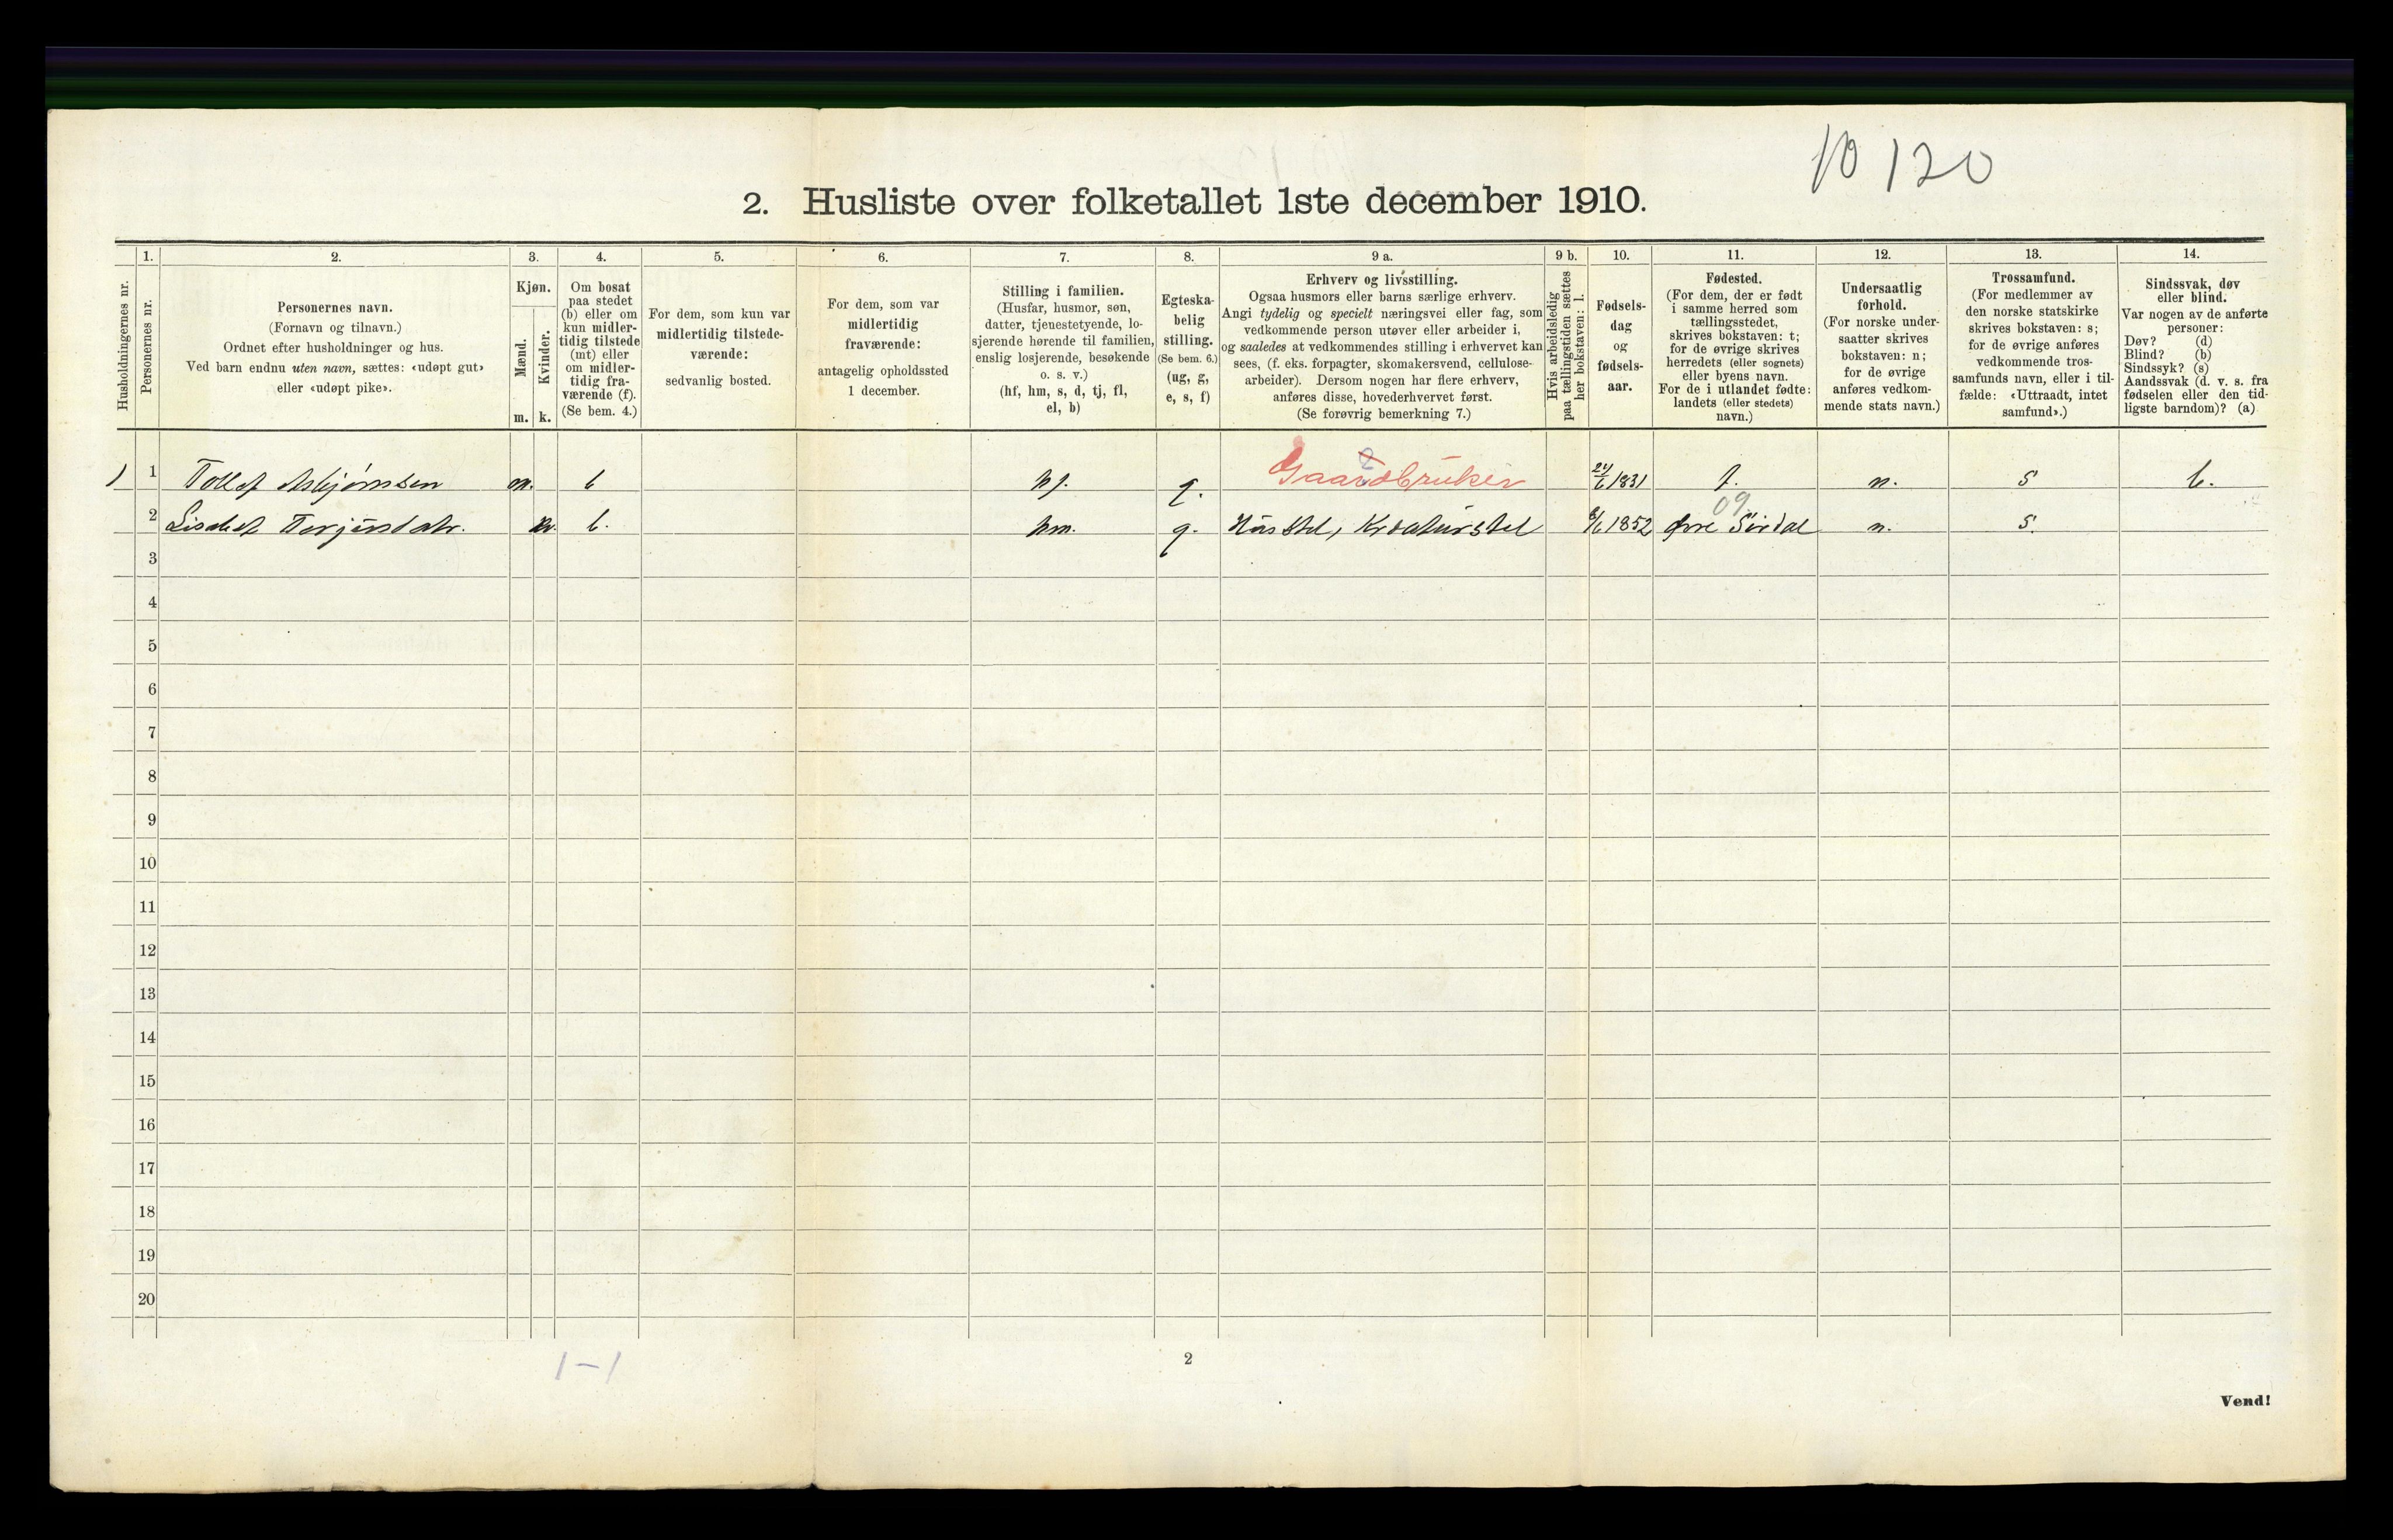 10 120
2. Husliste over folketallet 1ste december 1910.
Husholdningernes nr.
1.
Personernes nr.
2.
Personernes navn.
(Fornavn og tilnavn.)
Ordnet efter husholdninger og hus.
Ved barn endnu uten navn, sættes: «udøpt gut»
eller «udøpt pike».
3.
Kjøn.
Mænd.
Kvinder.
m. k.
4.
Om bosat
paa stedet
(b) eller om
kun midler-
tidig tilstede
(mt) eller
om midler-
tidig fra-
værende (f).
(Se bem. 4.)
5.
For dem, som kun var
midlertidig tilstede-
værende:
sedvanlig bosted.
6.
For dem, som var
midlertidig
fraværende:
antagelig opholdssted
1 december.
7.
Stilling i familien.
(Husfar, husmor, søn,
datter, tjenestetyende, lo-
sjerende hørende til familien,
enslig losjerende, besøkende
o. s. v.)
(hf, hm, s, d, tj, fl,
el, b)
8.
Egteska-
belig
stilling.
(Se bem. 6.)
(ug, g,
e, s, f)
9 a.
Erhverv og livsstilling.
Ogsaa husmors eller barns særlige erhverv.
Angi tydelig og specielt næringsvei eller fag, som
vedkommende person utøver eller arbeider i,
og saaledes at vedkommendes stilling i erhvervet kan
sees, (f. eks. forpagter, skomakersvend, cellulose-
arbeider). Dersom nogen har flere erhverv,
anføres disse, hovederhvervet først.
(Se forøvrig bemerkning 7.)
9 b.
Hvis arbeidsledig
paa tællingstiden sættes
her bokstaven: l.
10.
Fødsels-
dag
og
fødsels-
aar.
11.
Fødested.
(For dem, der er født
i samme herred som
tællingsstedet,
skrives bokstaven: t;
for de øvrige skrives
herredets (eller sognets)
eller byens navn.
For de i utlandet fødte:
landets (eller stedets)
navn.)
12.
Undersaatlig
forhold.
(For norske under-
saatter skrives
bokstaven: n;
for de øvrige
anføres vedkom-
mende stats navn.)
13.
Trossamfund.
(For medlemmer av
den norske statskirke
skrives bokstaven: s;
for de øvrige anføres
vedkommende tros-
samfunds navn, eller i til-
fælde: «Uttraadt, intet
samfund».)
14.
Sindssvak, døv
eller blind.
Var nogen av de anførte
personer:
Døv? (d)
Blind? (b)
Sindssyk? (s)
Aandssvak (d. v. s. fra
fødselen eller den tid-
ligste barndom)? (a)
1 Tollef Asbjørnsen m. b hf. g. Gaardbruker 1831 t. n. s b.
09
2 Lisabet Terjusdatr. k. b. hm. g. Husstel, Kreaturstel 1852 Øvre Sirdal n. s.
3
4
5
6
7
8
9
10
11
12
13
14
15
16
17
18
19
20
1-1
2
Vend!